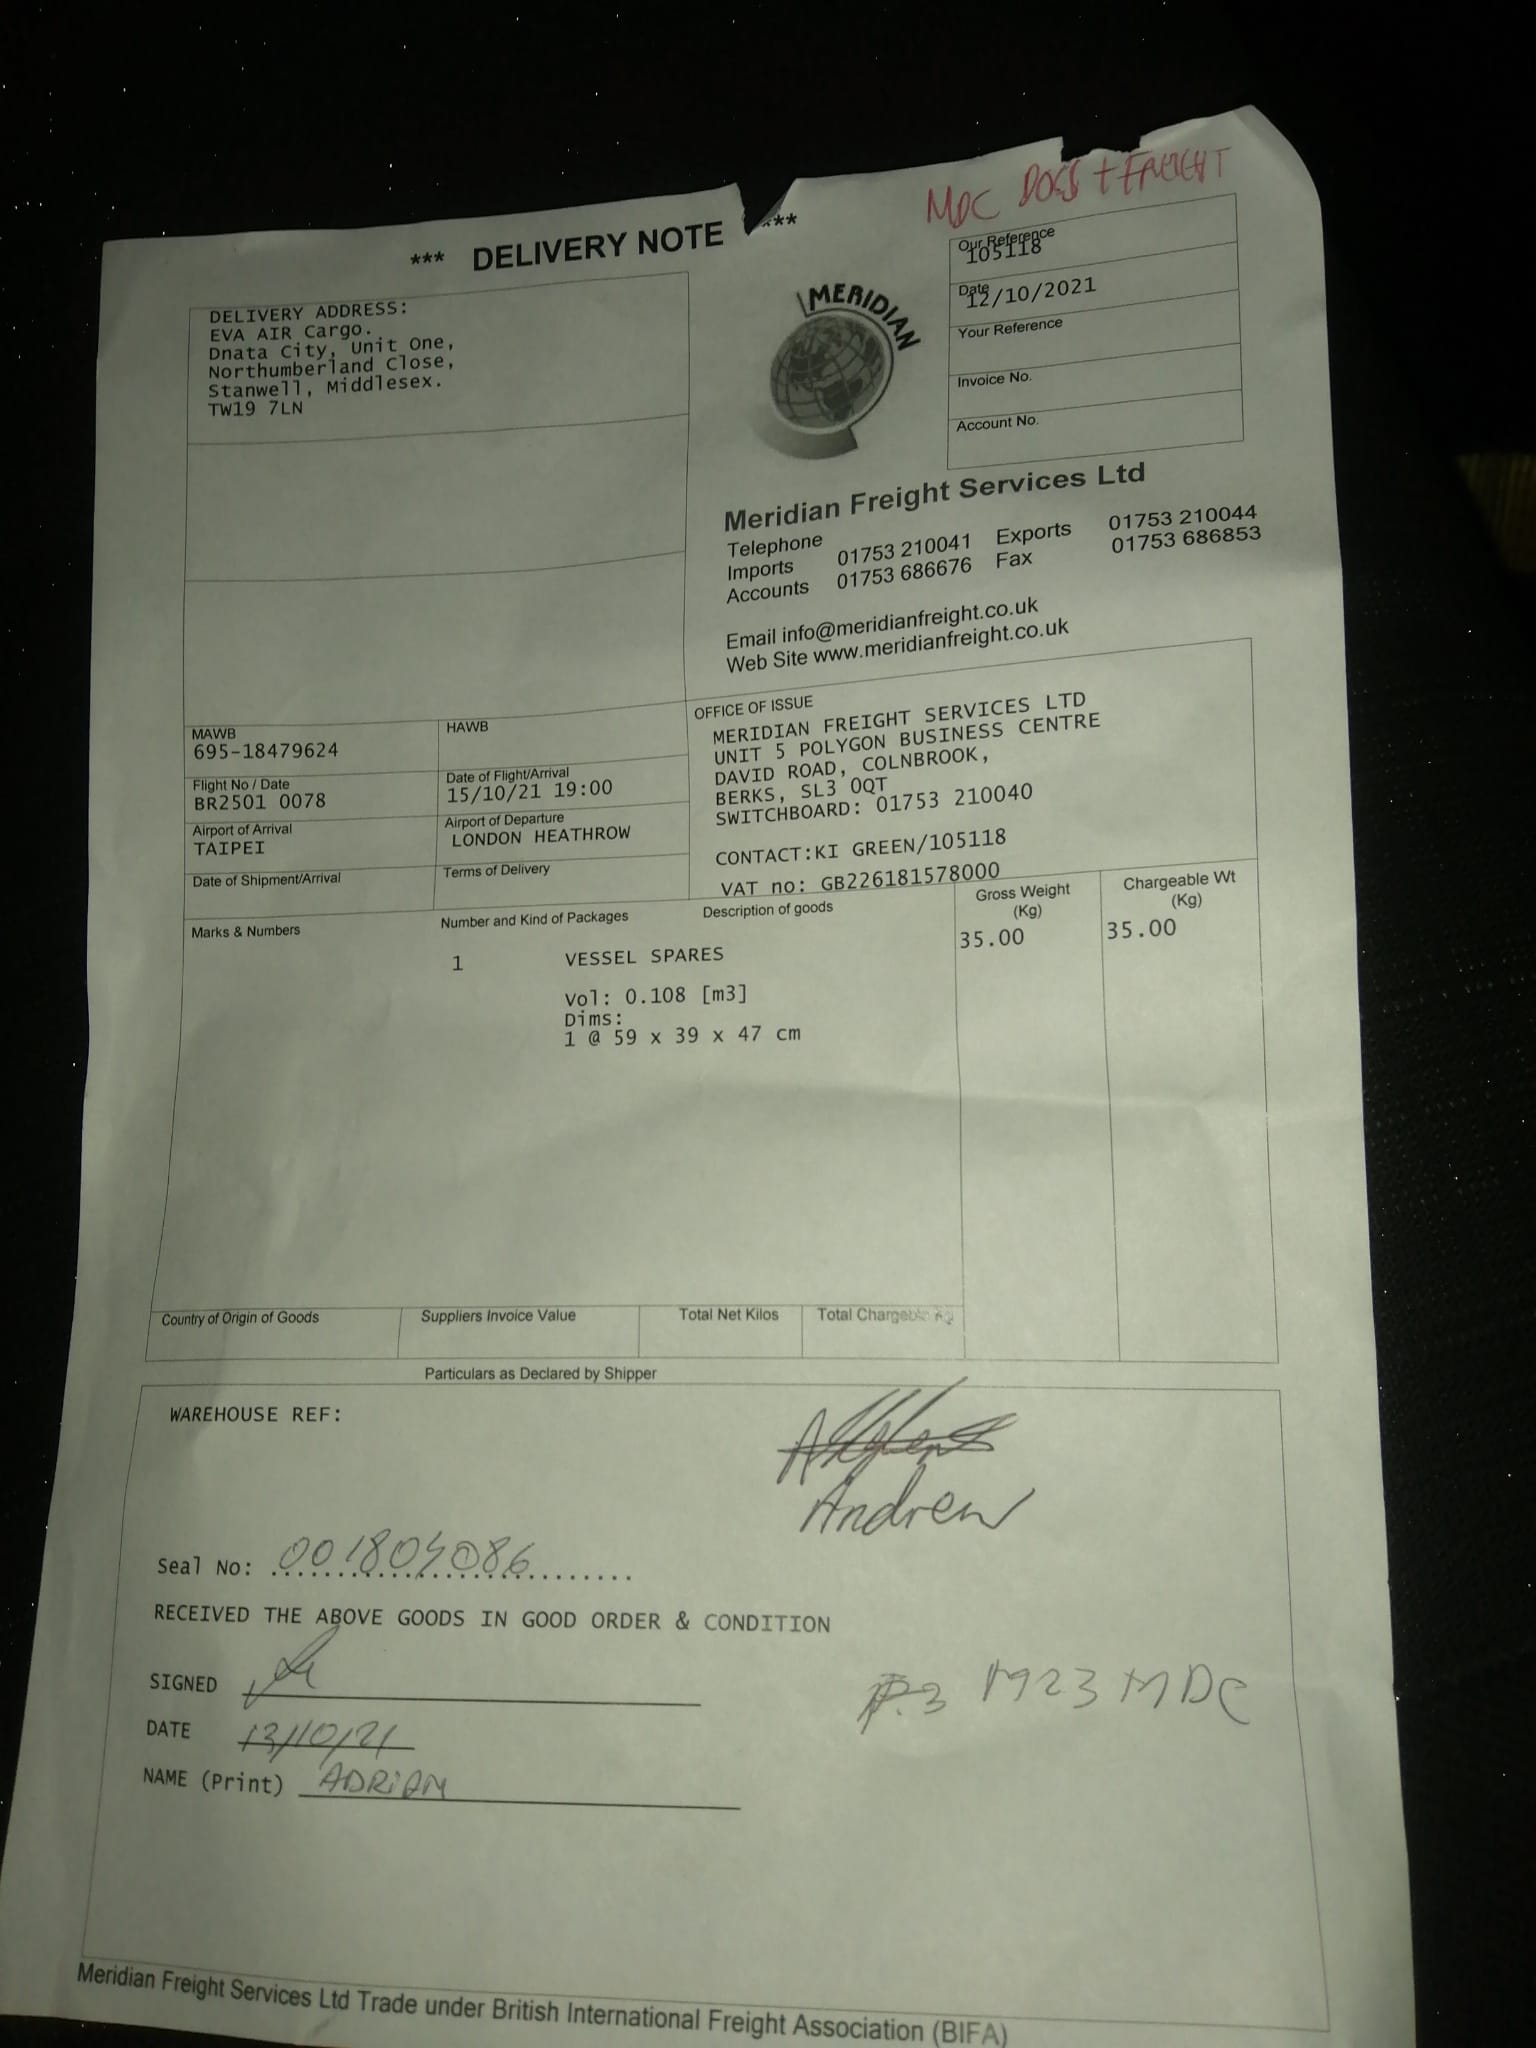 MDC DOCS + FREIGHT
*** DELIVERY NOTE ***
Our Reference
105118
Date
12/10/2021
Your Reference
Invoice No.
Account No.
DELIVERY ADDRESS:
EVA AIR Cargo.
Dnata City, Unit One,
Northumberland Close,
Stanwell, Middlesex.
TW19 7LN
MERIDIAN
Meridian Freight Services Ltd
Telephone
Imports 01753 210041 Exports 01753 210044
Accounts 01753 686676 Fax 01753 686853
Email info@meridianfreight.co.uk
Web Site www.meridianfreight.co.uk
MAWB
695-18479624
HAWB
Flight No / Date
BR2501 0078
Date of Flight/Arrival
15/10/21 19:00
Airport of Arrival
TAIPEI
Airport of Departure
LONDON HEATHROW
Date of Shipment/Arrival
Terms of Delivery
OFFICE OF ISSUE
MERIDIAN FREIGHT SERVICES LTD
UNIT 5 POLYGON BUSINESS CENTRE
DAVID ROAD, COLNBROOK,
BERKS, SL3 0QT
SWITCHBOARD: 01753 210040
CONTACT:KI GREEN/105118
VAT no: GB226181578000
Marks & Numbers
Number and Kind of Packages
Description of goods
Gross Weight
(Kg)
Chargeable Wt
(Kg)
1 VESSEL SPARES 35.00 35.00
Vol: 0.108 [m3]
Dims:
1 @ 59 x 39 x 47 cm
Country of Origin of Goods
Suppliers Invoice Value
Total Net Kilos
Total Chargeable Kg
Particulars as Declared by Shipper
WAREHOUSE REF:
Andrew
Seal No: 001804086
RECEIVED THE ABOVE GOODS IN GOOD ORDER & CONDITION
SIGNED
1923 MDC
DATE 13/10/21
NAME (Print) ADRIAN
Meridian Freight Services Ltd Trade under British International Freight Association (BIFA)